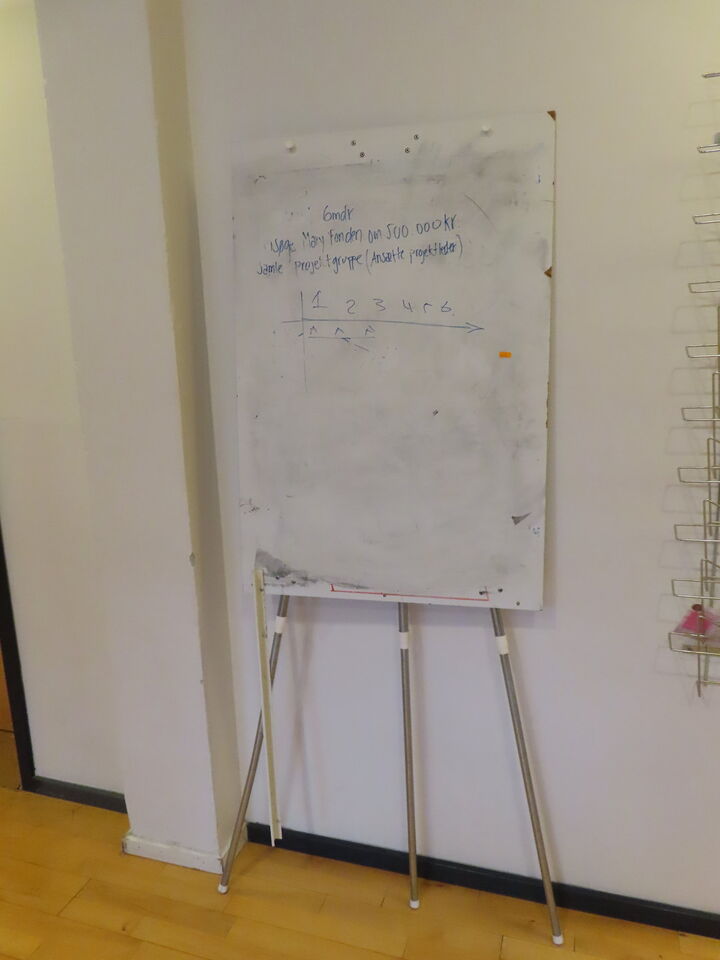 6mdr
søge Mary Fonden om 500.000kr.
samle projektgruppe (Ansætte projektleder)
1 2 3 4 5 6.